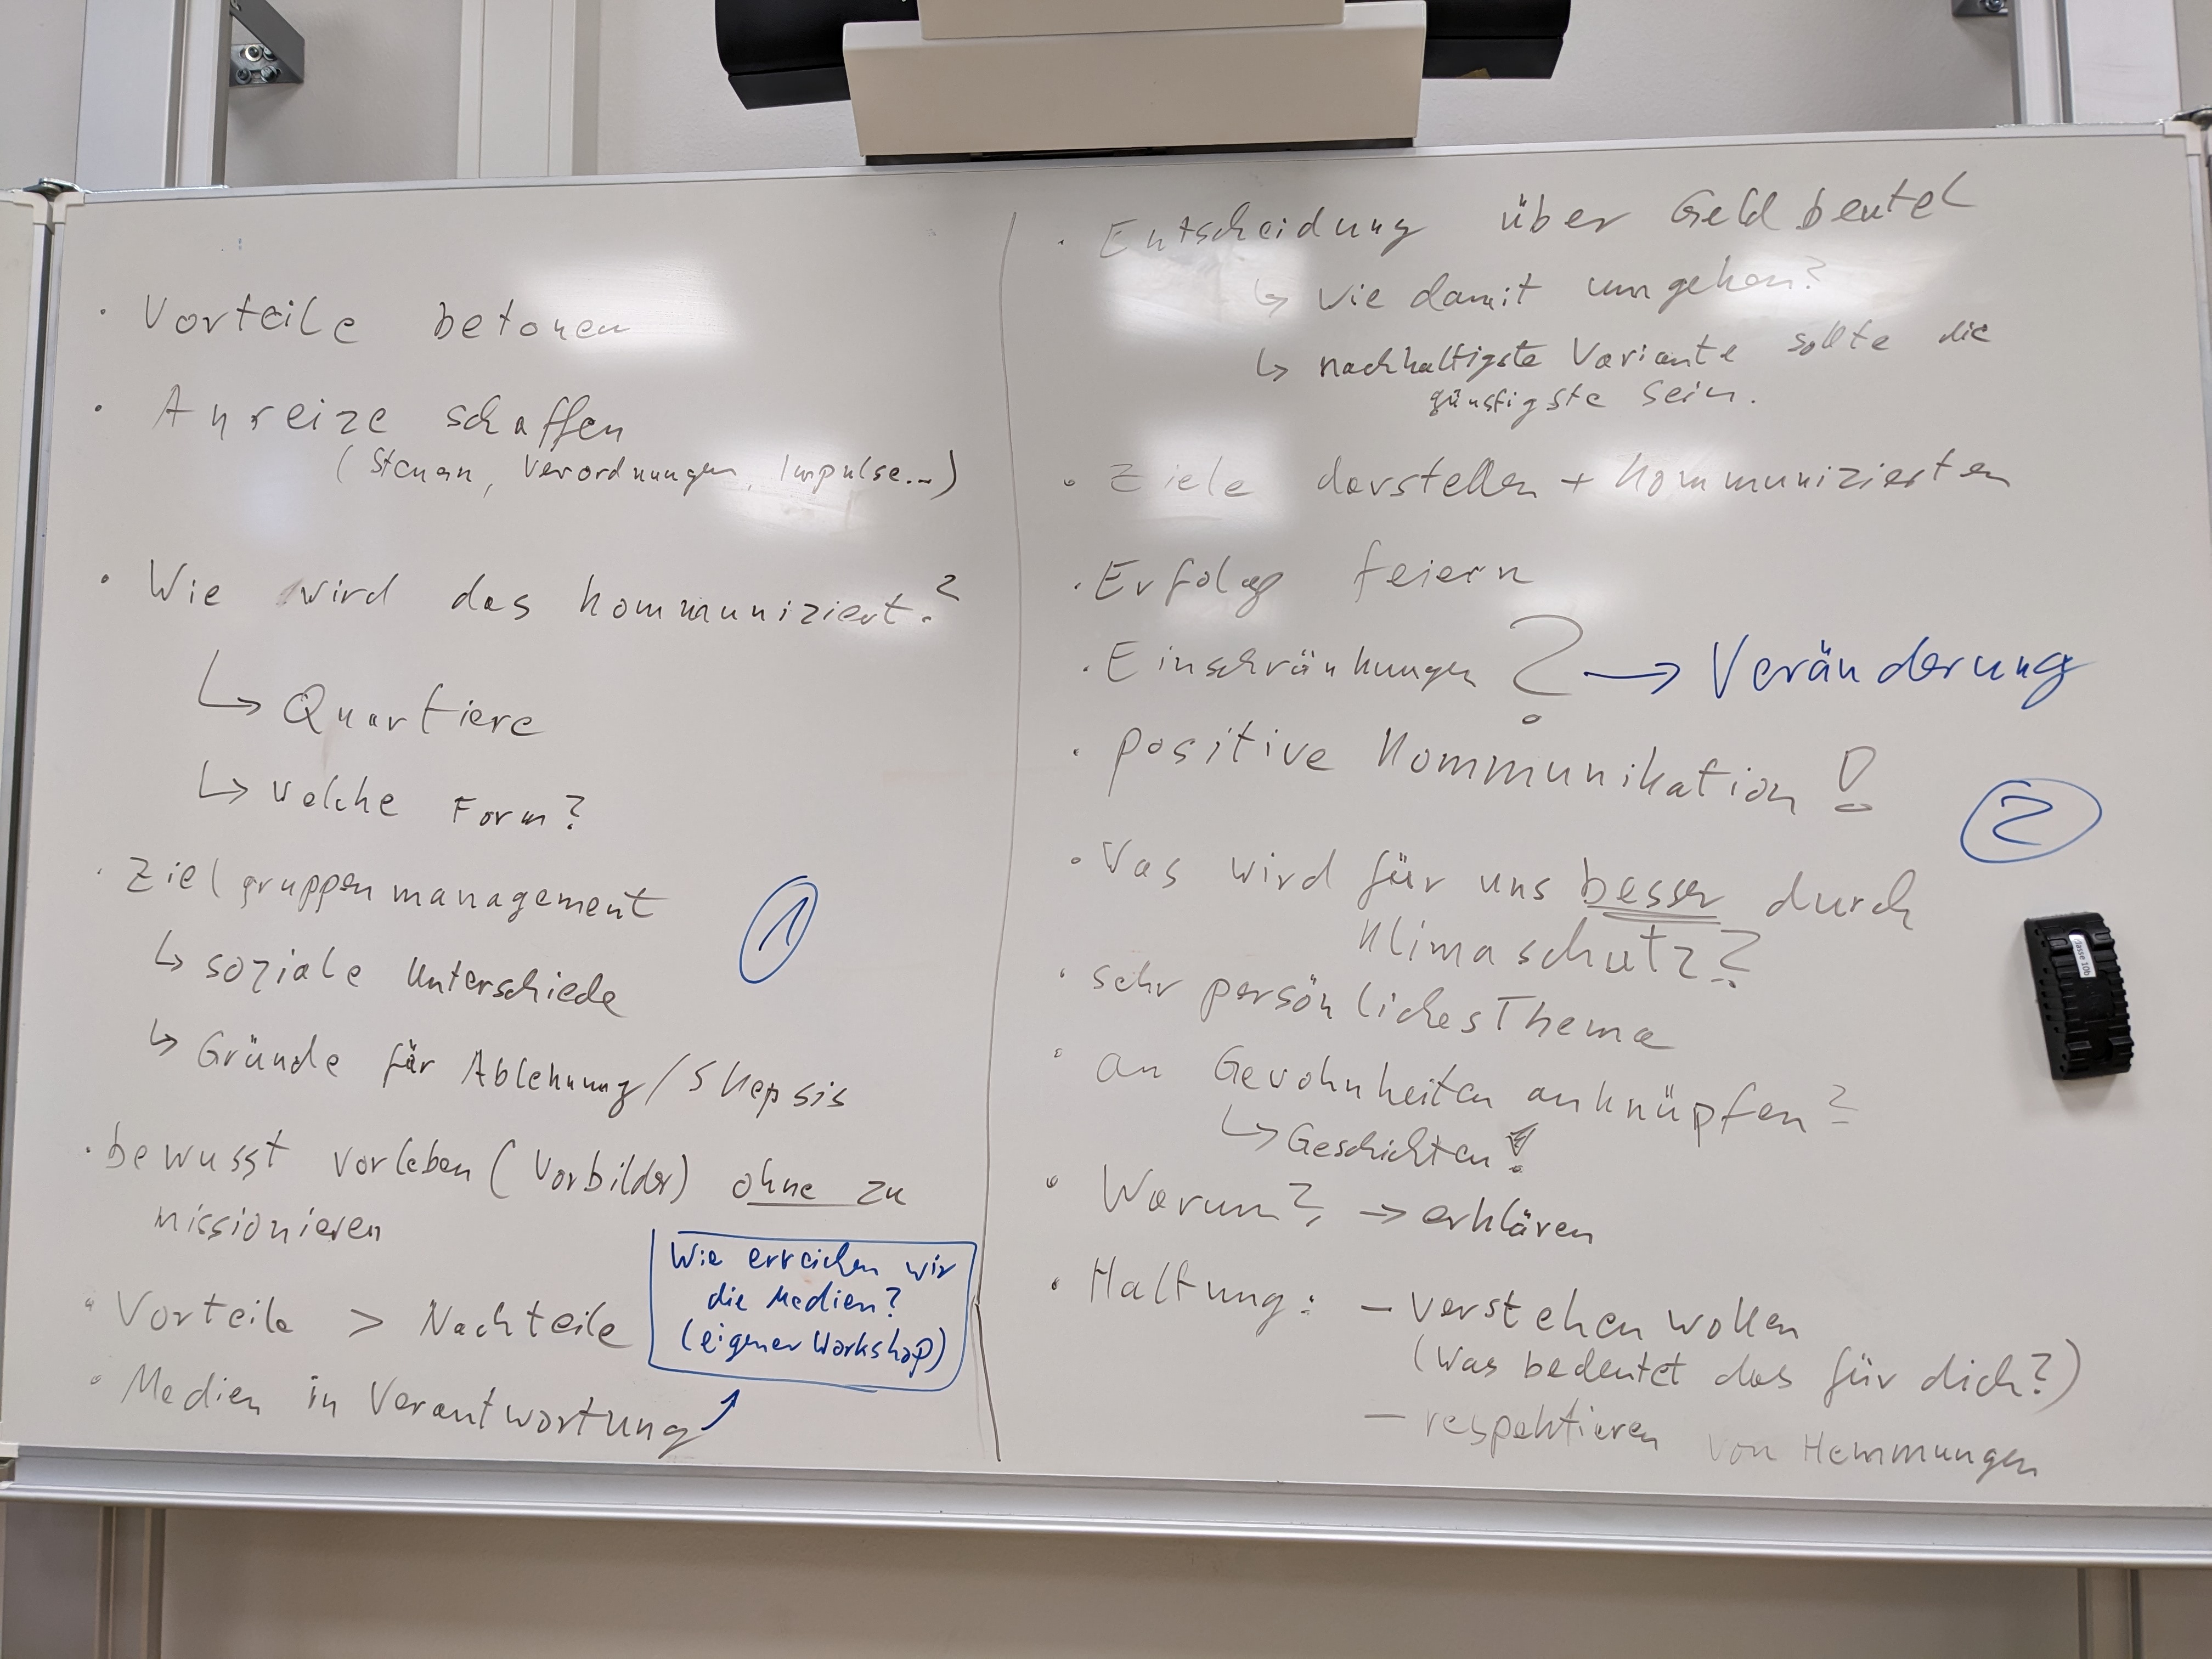 · Vorteile betonen
· Anreize schaffen
(Steuern, Verordnungen, Impulse...)
· Wie wird das kommuniziert?
↳ Quartiere
↳ Welche Form?
· Zielgruppenmanagement
↳ soziale Unterschiede
↳ Gründe für Ablehnung/Skepsis
· bewusst vorleben (Vorbilder) ohne zu
missionieren
· Vorteile > Nachteile
· Medien in Verantwortung
Wie erreichen wir
die Medien?
(eigener Workshop)
1
· Entscheidung über Geldbeutel
↳ Wie damit umgehen?
↳ nachhaltigste Variante sollte die
günstigste sein.
· Ziele darstellen + kommunizierten
· Erfolg feiern
· Einschränkungen ? → Veränderung
· positive Kommunikation !
2
· Was wird für uns besser durch
Klimaschutz?
· sehr persönliches Thema
· an Gewohnheiten anknüpfen?
↳ Geschichten!
· Warum? → erklären
· Haltung: – verstehen wollen
(Was bedeutet das für dich?)
– respektieren von Hemmungen